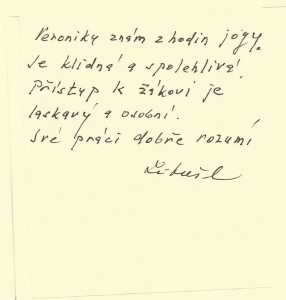 Veroniku znám z hodin jógy.
Je klidná a spolehlivá.
Přístup k žákovi je
laskavý a osobní.
své práci dobře rozumí
Libuše